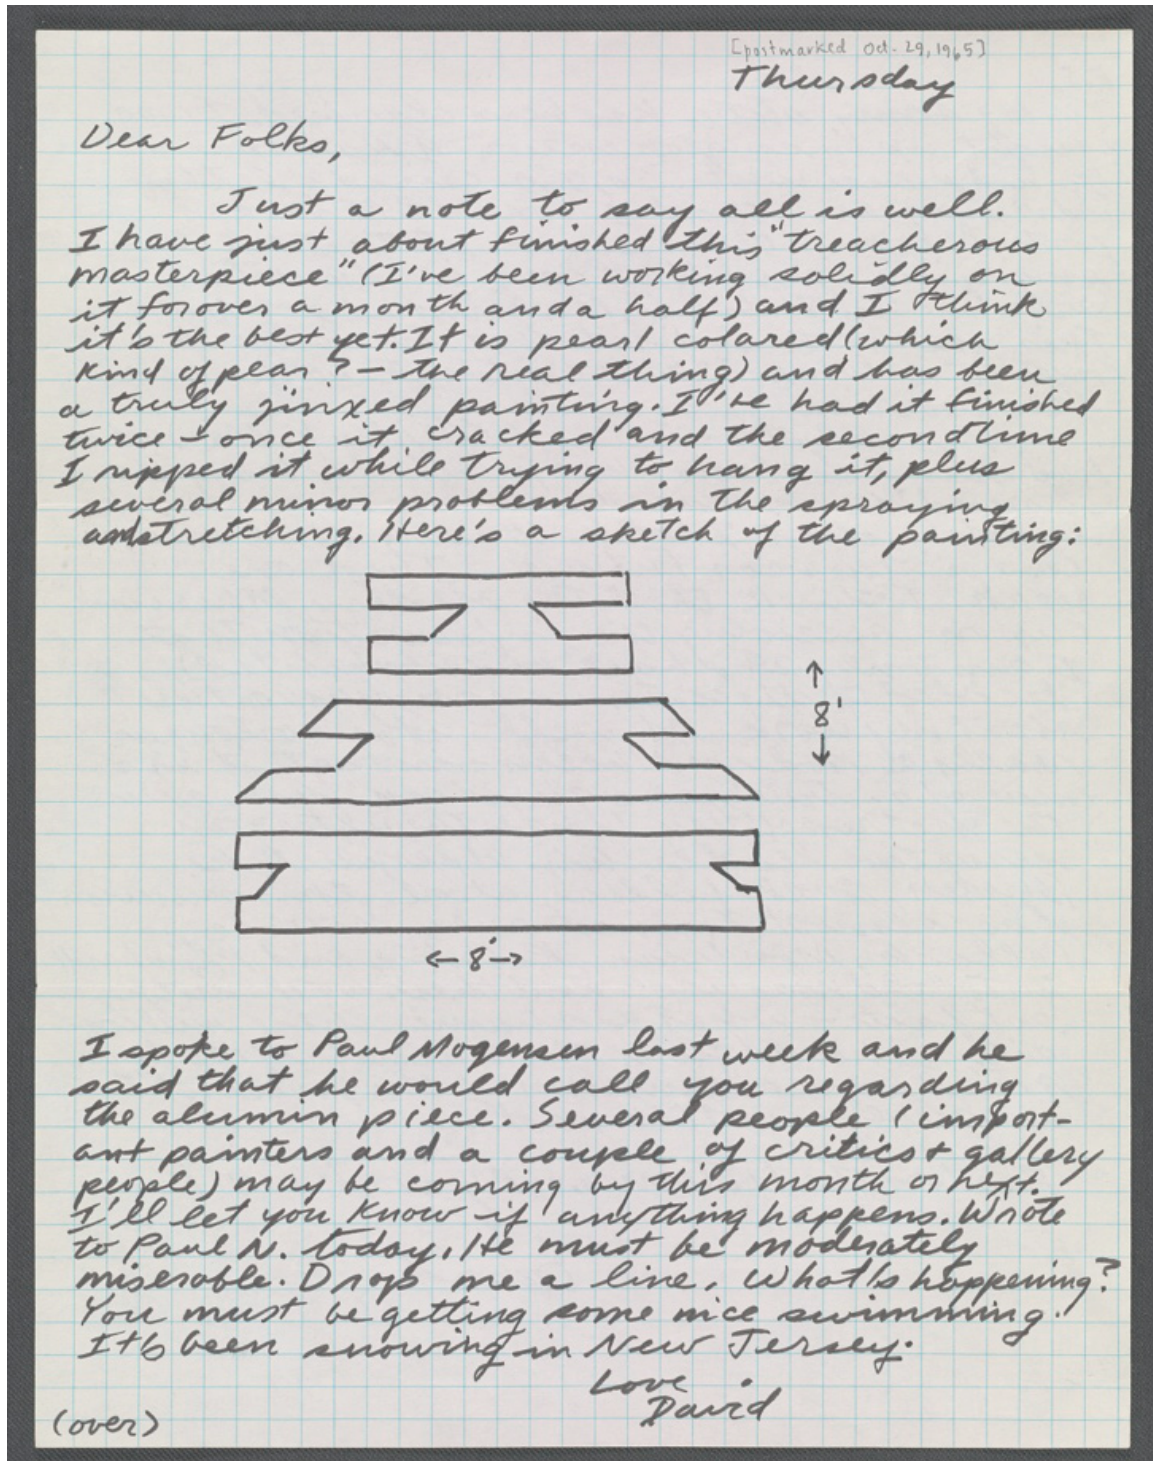 [postmarked Oct. 29, 1965]
Thursday
Dear Folks,
Just a note to say all is well.
I have just about finished this "treacherous
masterpiece" (I've been working solidly on
it for over a month and a half) and I think
it's the best yet. It is pearl colared (which
kind of pear? – the real thing) and has been
a truly jinxed painting. I've had it finished
twice – once it cracked and the second time
I ripped it while trying to hang it, plus
several minor problems in the spraying
and stretching. Here's a sketch of the painting:
8'
8'
I spoke to Paul Mogensen last week and he
said that he would call you regarding
the alumin piece. Several people (import-
ant painters and a couple of critics + gallery
people) may be coming by this month or next.
I'll let you know if anything happens. Wrote
to Paul N. today. He must be moderately
miserable. Drop me a line. What's happening?
You must be getting some nice swimming.
It's been snowing in New Jersey.
Love
David
(over)